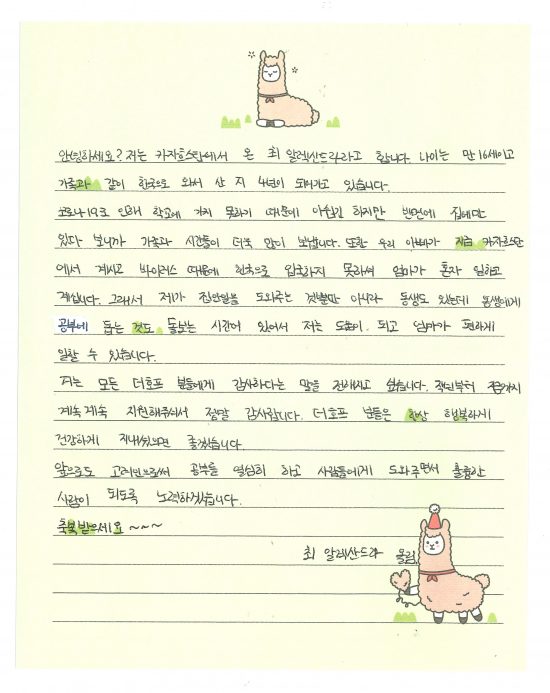 안녕하세요? 저는 카자흐스탄에서 온 최 알렉산드라라고 합니다. 나이는 만 16세이고
가족과 같이 한국으로 와서 산 지 4년이 되어가고 있습니다.
코로나19로 인해 학교에 가지 못하기 때문에 아쉽긴 하지만 반면에 집에만
있다 보니까 가족과 시간들이 더욱 많이 보냅니다. 또한 우리 아빠가 지금 카자흐스탄
에서 계시고 바이러스 때문에 한국으로 입국하지 못하셔 엄마가 혼자 일하고
계십니다. 그래서 제가 집안일을 도와주는 것뿐만 아니라 동생도 있는데 동생에게
공부에 돕는 것도 돌보는 시간이 있어서 저는 도움이 되고 엄마가 편하게
일할 수 있습니다.
저는 모든 더호프 분들에게 감사하다는 말을 전해지고 싶습니다. 작년부터 지금까지
계속계속 지원해주셔서 정말 감사합니다. 더호프 분들은 항상 행복하게
건강하게 지내셨으면 좋겠습니다.
앞으로도 고려인으로써 공부를 열심히 하고 사람들에게 도와주면서 훌륭한
사람이 되도록 노력하겠습니다.
축복받으세요 ~~~
최 알렉산드라 올림